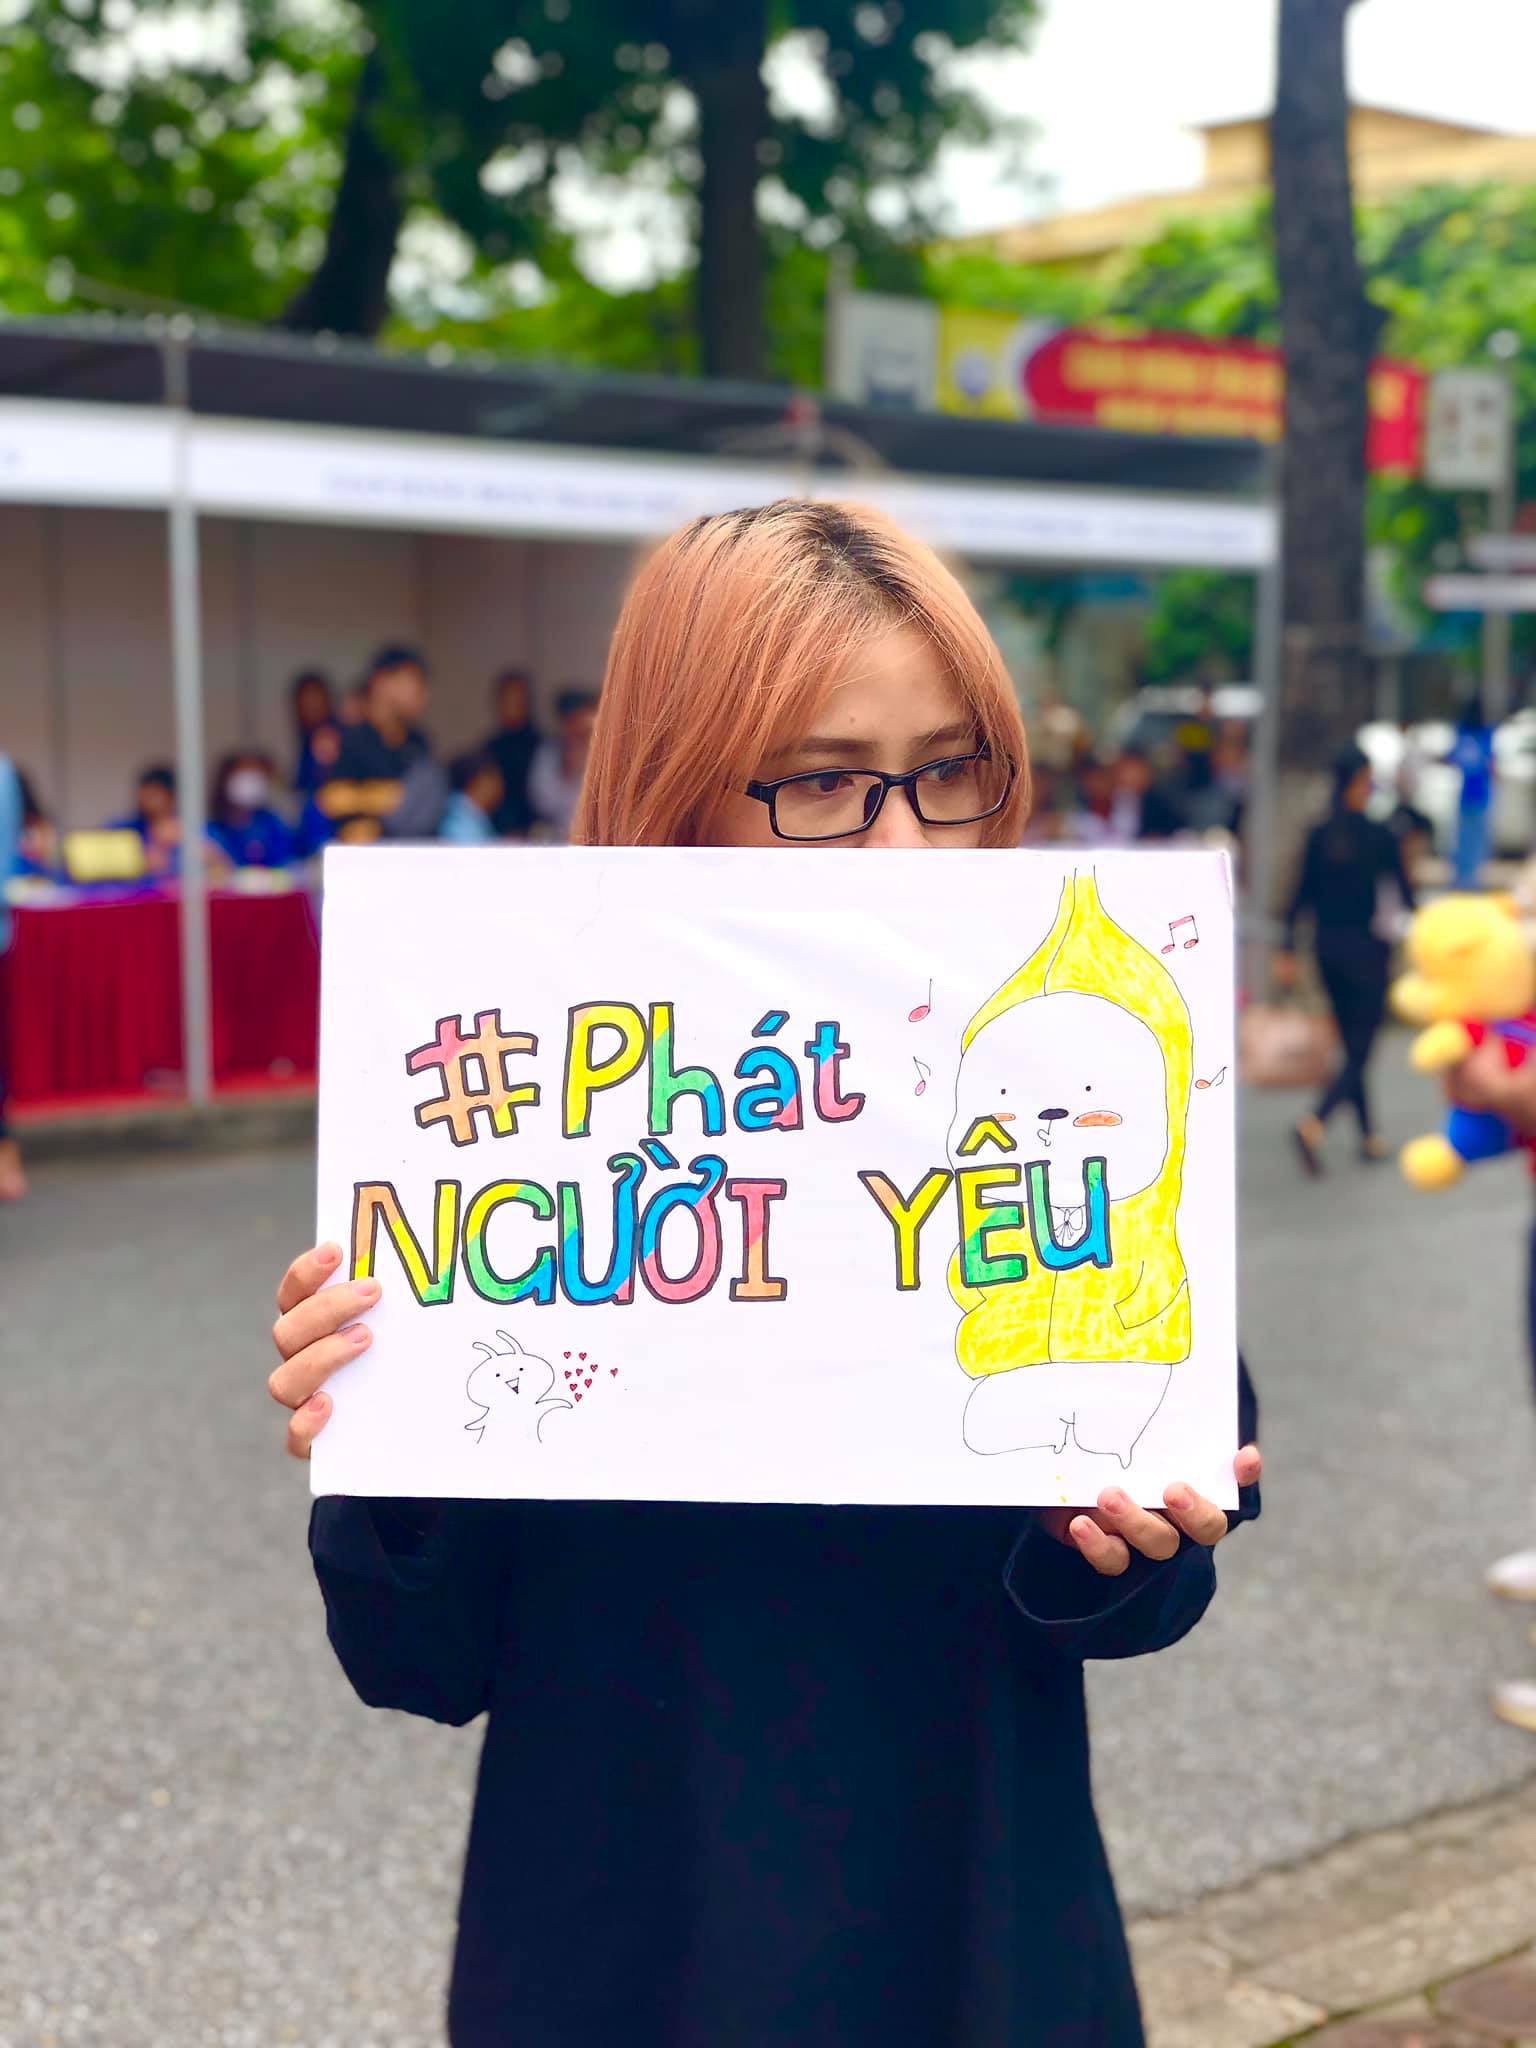 #Phát
NGƯỜI YÊU